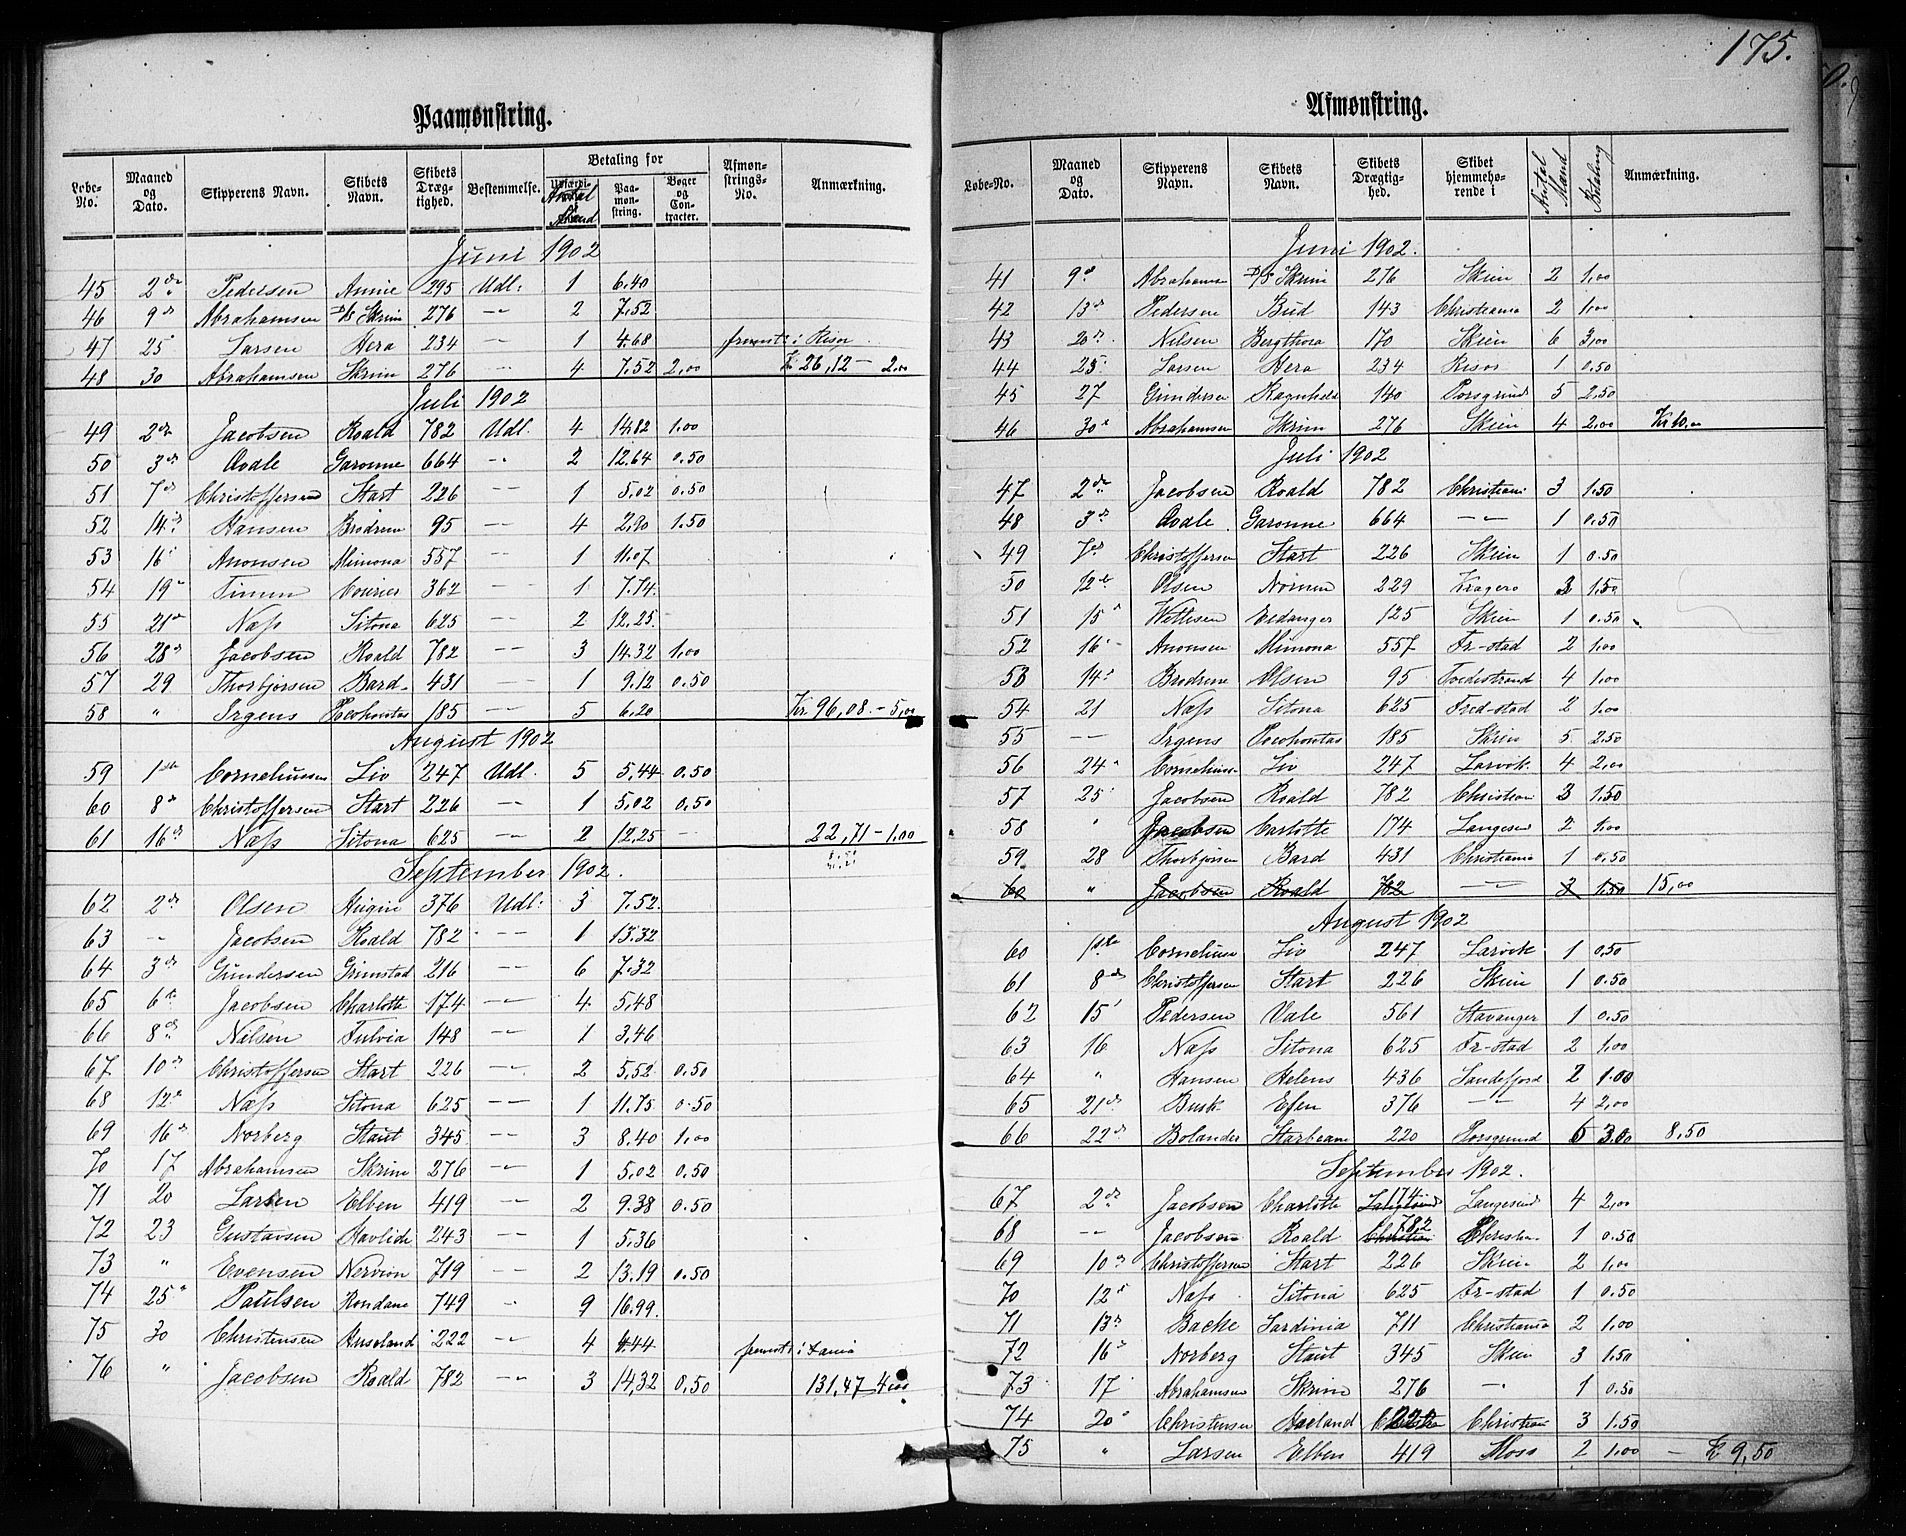 175.
Paamønstring.
Løbe-No. Maaned og Dato. Skipperens Navn. Skibets Navn. Skibets Drægtighed. Bestemmelse. Betaling for Antal Mand Paamønstring. Bøger og Contracter. Afmønstrings-No. Anmærkning.
Juni 1902
45 2de Pedersen Annie 295 Udl. 1 6.40
46 9de Abrahamsen D/S Skrim 276 -"- 2 7.52
47 25 Larsen Hera 234 -"- 1 4.68 Risør
48 30 Abrahamsen Skrim 276 -"- 4 7.52 2,00 Kr 26,12 - 2.00
Juli 1902
49 2de Jacobsen Roald 782 Udl. 4 14.82 1.00
50 3de Qvale Garonne 664 -"- 2 12.64 0.50
51 7de Christoffersen Start 226 -"- 1 5,02 0.50
52 14de Hansen Brødrene 95 -"- 4 2.90 1.50
53 16 Anonsen Mimona 557 -"- 1 11.07
54 19 Timm Courier 362 -"- 1 7.74
55 21de Næss Sitona 625 -"- 2 12.25
56 28de Jacobsen Roald 782 -"- 3 14.32 1,00
57 29 Thorbjørsen Bard 431 -"- 1 9.12 0.50
58 " Irgens Pocohontas 185 -"- 5 6.20 Kr. 96,08 - 5,00
August 1902
59 1ste Corneliussen Liv 247 Udl. 5 5,44 0.50
60 8de Christoffersen Start 226 -"- 1 5,02 0,50
61 16de Næss Sitona 625 -"- 2 12,25 - 22,71 - 1.00
September 1902.
62 2de Olsen 376 Udl. 3 7.52
63 -"- Jacobsen Roald 782 -"- 1 13.32
64 3de Gundersen Grimstad 216 -"- 6 7.32
65 6te Jacobsen Charlotte 174 -"- 4 5,48
66 8de Nilsen Fulvia 148 1 3,46
67 10de Christoffersen Start 226 -"- 2 5,52 0.50
68 12te Næss Sitona 625 -"- 1 11.75 0.50
69 16de Norberg Staut 345 -"- 3 8.40 1,00
70 17 Abrahamsen Skrim 276 -"- 1 5,02 0.50
71 20 Larsen Elben 419 -"- 2 9.38 0.50
72 23 Gustavsen Havlide 243 -"- 1 5,36
73 " Evensen Nervion 719 -"- 2 13.19 0.50
74 25 Paulsen Rondane 749 -"- 9 16.99
75 30 Christensen 222 -"- 4 4.44
76 " Jacobsen Roald 782 -"- 3 14,32 0,50 131,47 4.00
Afmønstring.
Løbe-No. Maaned og Dato. Skipperens Navn. Skibets Navn. Skibets Drægtighed. Skibet hjemmehørende i Antal Mand Betaling Anmærkning.
Juni 1902.
41 9de Abrahamsen D/S Skrim 276 Skien 2 1,00
42 13de Pedersen Bud 143 Christiania 2 1,00
43 20de Nilsen Bergthora 170 Skien 6 3,00
44 25 Larsen Hera 234 Risør 1 0.50
45 27 Gundersen Ragnhild 140 Porsgrund 5 2,50
46 30te Abrahamsen Skrim 276 Skien 4 2,00 Kr 10,00
Juli 1902
47 2de Jacobsen Roald 782 Christiani 3 1.50
48 3de Qvale Garonne 664 -"- 1 0.50
49 7de Christoffersen Start 226 Skien 1 0.50
50 12te Olsen 229 Kragerø 3 1.50
51 15 Wettesen Eidanger 125 Skien 1 0.50
52 16 Anonsen Mimona 557 Fr-stad 2 1,00
53 14 Brødrene Olsen 95 Tvedestrand 4 1,00
54 21 Næss Sitona 625 Fred-stad 2 1,00
55 -"- Irgens Pocohontas 185 Skien 5 2.50
56 24 Corneliuss. Liv 247 Larvik 4 2,00
57 25 Jacobsen Roald 782 Christiani 3 1.50
58 " Jacobsen Carlotte 174 Langesund 2 1.00
59 28 Thorbjørsen Bard 431 Christiania 1 0.50
60 " Jacobsen Roald 782 -"- 3 1.50 15,00
August 1902
60 1ste Corneliuss Liv 247 Larvik 1 0,50
61 8de Christoffersen Start 226 Skien 1 0.50
62 15 Pedersen Vale 561 Stavanger 1 0.50
63 16 Næss Sitona 625 Fr-stad 2 1,00
64 " Hansen Helens 436 Sandefjord 2 1.00
65 21de Busk Efen 376 -"- 4 2,00
66 22de Bolander Starbeam 220 Porsgrund 6 3.00 8,50
September 1902.
67 2de Jacobsen Charlotte 174 Langesund 4 2,00
68 -"- Jacobsen Roald 782 Christia- 1 0.50
69 10de Christoffersen Start 226 Skien 2 1,00
70 12 Næss Sitona 625 Fr-stad 1 0.50
71 13de Backe Sardinia 711 Christiania 2 1,00
72 16de Norberg Staut 345 Skien 3 1.50
73 17 Abrahamsen Skrim 276 -"- 1 0.50
74 20 Christensen 222 Christiani 3 1.50
75 " Larsen Elben 419 Moss 2 1,00 - Kr 9,50